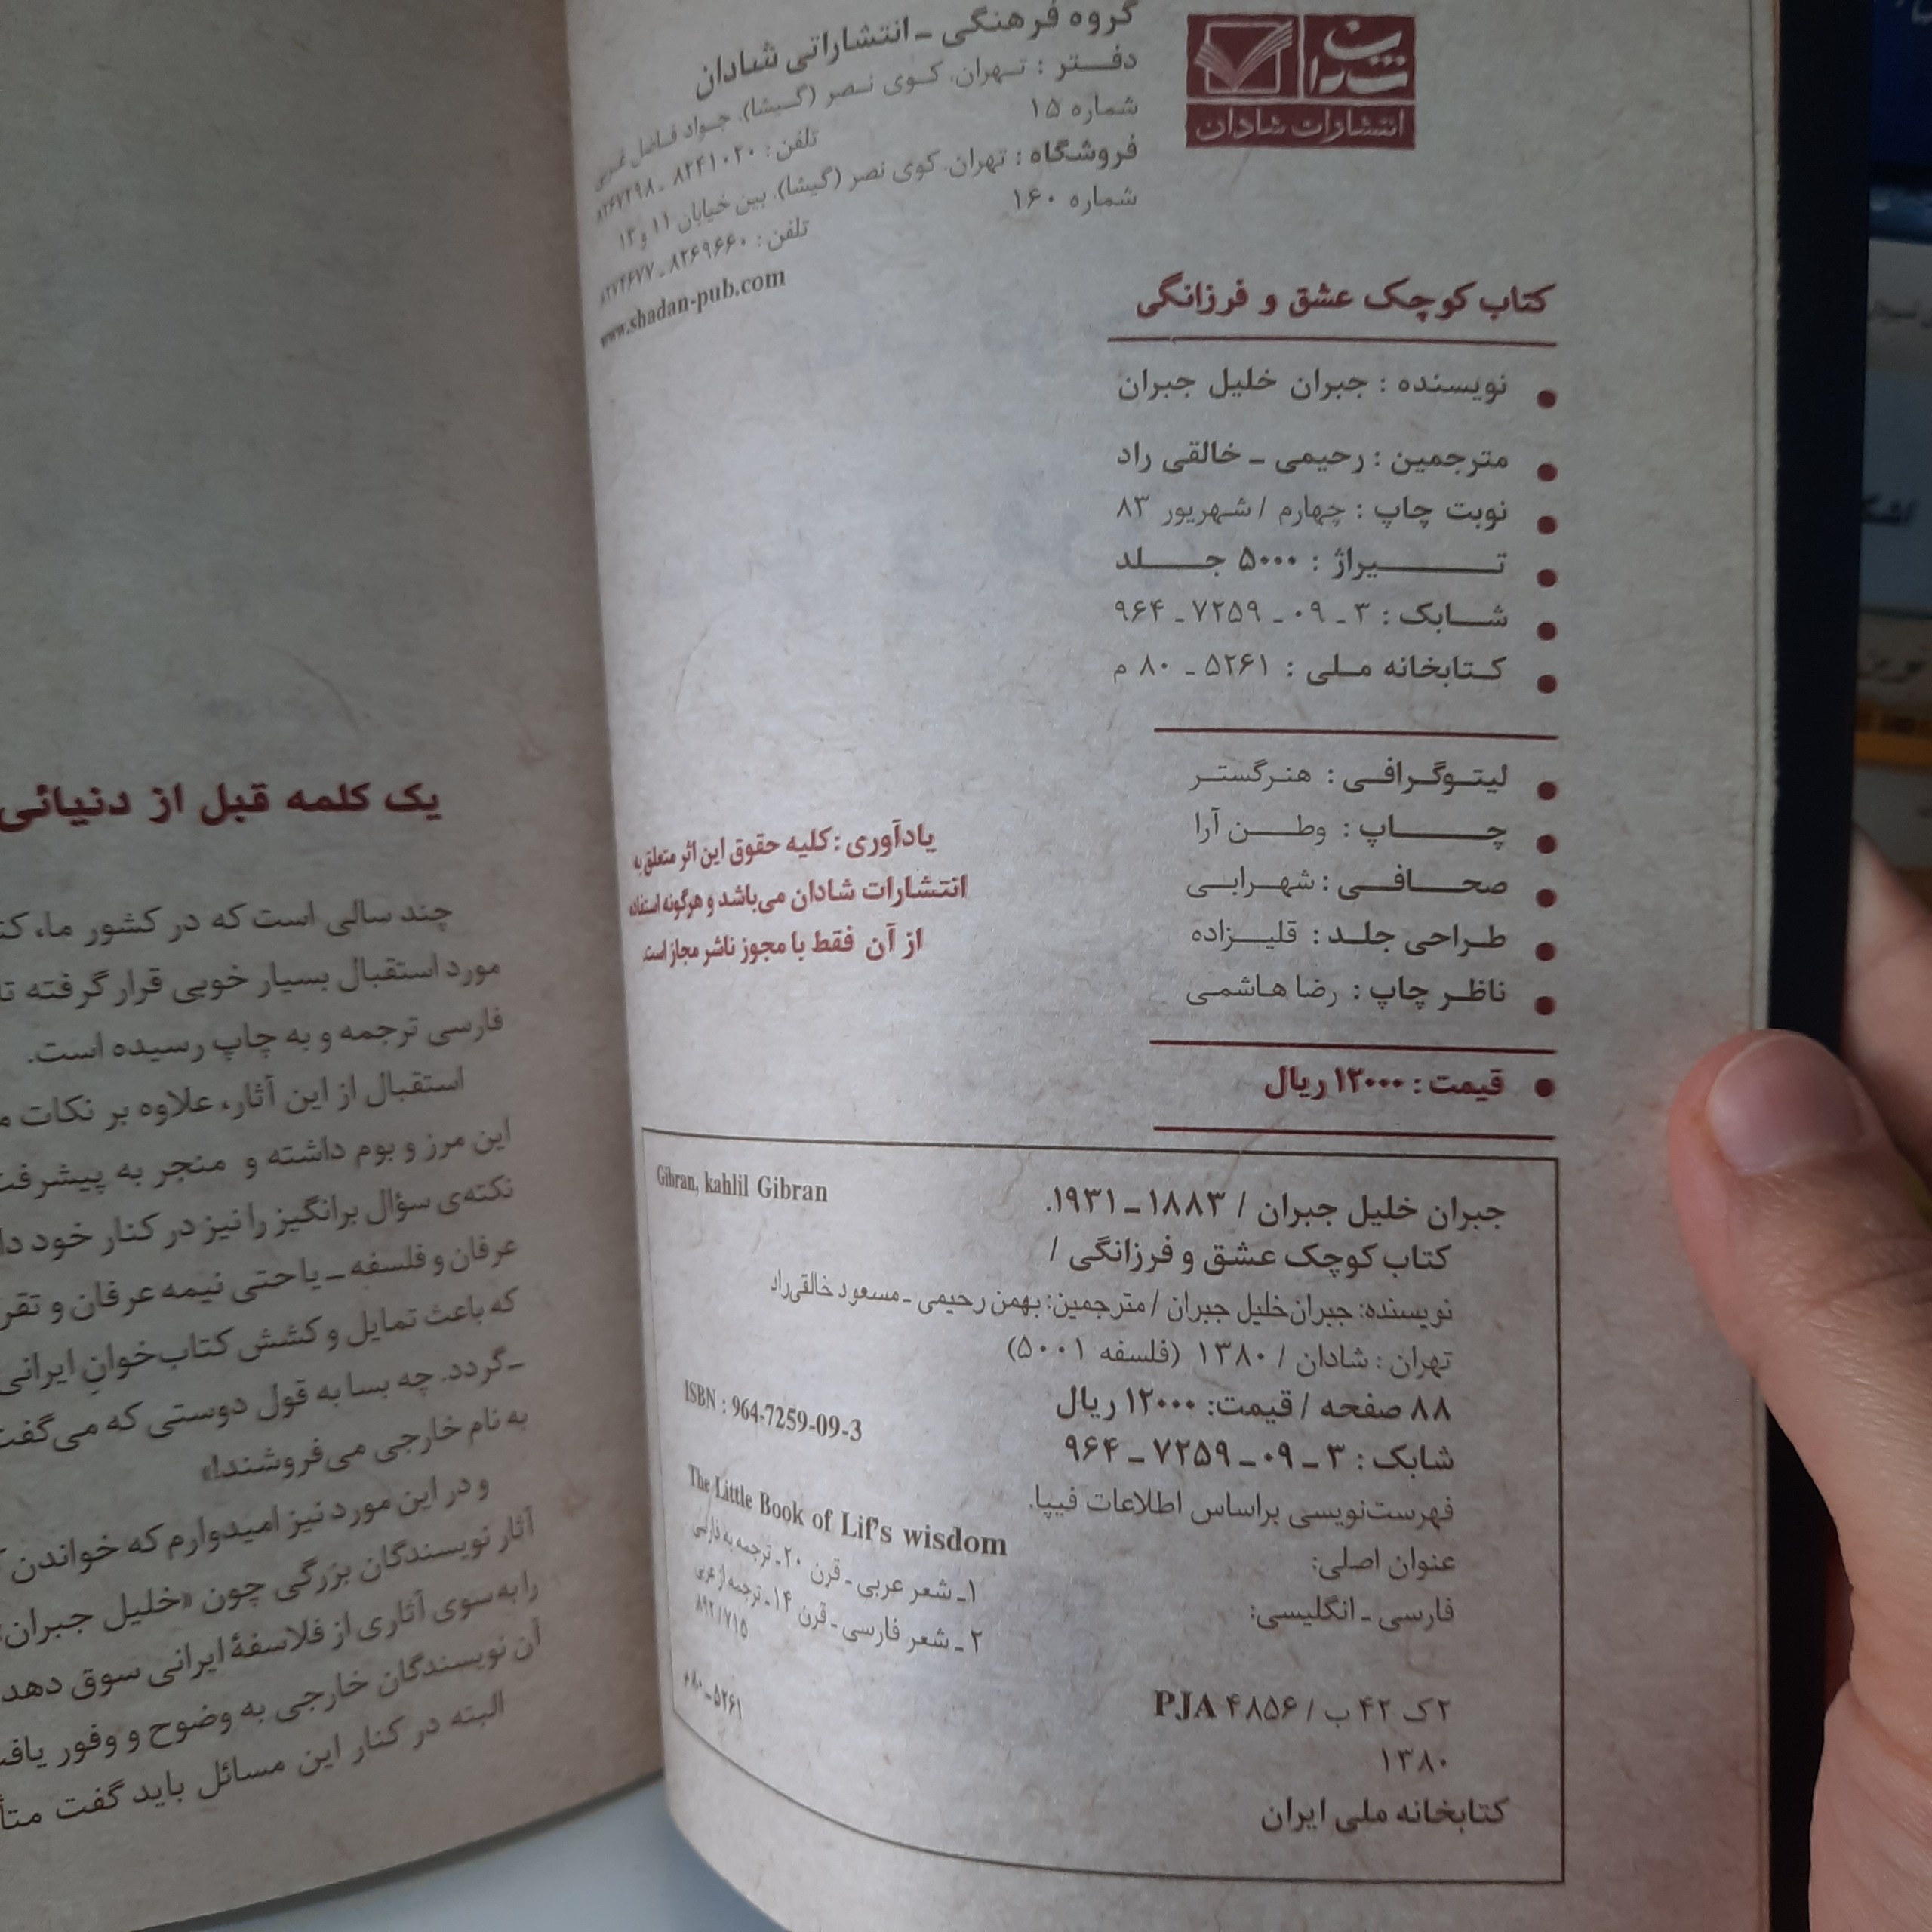 شادان
انتشارات شادان
گروه فرهنگی ـ انتشاراتی شادان
دفـــتر : تـهران، کـوی نـصر (گـیشا)، جـواد فـاضل غـربی
شماره ۱۵
تلفن : ۸۲۴۱۰۲۰ ـ ۸۲۶۷۲۹۸
فروشگاه : تهران، کوی نصر (گیشا)، بین خیابان ۱۱ و ۱۳
شماره ۱۶۰
تلفن : ۸۲۶۹۶۶۰ ـ ۸۲۷۴۶۷۷
www.shadan-pub.com
کتاب کوچک عشق و فرزانگی
نویسنده : جبران خلیل جبران
مترجمین : رحیمی ـ خالقی راد
نوبت چاپ : چهارم / شهریور ۸۳
تـــــــیراژ : ۵۰۰۰ جـــــلد
شـــابک : ۳ ـ ۰۹ ـ ۷۲۵۹ ـ ۹۶۴
کـتابخانه مـلی : ۵۲۶۱ ـ ۸۰ م
لیتـوگـرافـی : هنـرگستـر
چـــــــاپ : وطــــن آرا
صحـــــافــی : شهـرابـی
طـراحی جلـد : قلیـــزاده
ناظـر چاپ : رضا هـاشمـی
یادآوری : کلیه حقوق این اثر متعلق به
انتشارات شادان می‌باشد و هرگونه استفاده
از آن فقط با مجوز ناشر مجاز است.
قیمت : ۱۲۰۰۰ ریال
جبران خلیل جبران / ۱۸۸۳ ـ ۱۹۳۱.
Gibran, kahlil Gibran
کتاب کوچک عشق و فرزانگی /
نویسنده: جبران‌خلیل جبران / مترجمین: بهمن رحیمی ـ مسعود خالقی‌راد
تهران : شادان / ۱۳۸۰ (فلسفه ۵۰۰۱)
۸۸ صفحه / قیمت: ۱۲۰۰۰ ریال
شابک : ۳ ـ ۰۹ ـ ۷۲۵۹ ـ ۹۶۴
ISBN : 964-7259-09-3
فهرست‌نویسی براساس اطلاعات فیپا.
عنوان اصلی:
The Little Book of Lif's wisdom
فارسی ـ انگلیسی:
۱ـ شعر عربی ـ قرن ۲۰ ـ ترجمه به فارسی
۲ ـ شعر فارسی ـ قرن ۱۴ ـ ترجمه از عربی
۸۹۲/۷۱۵
۲ ک ۴۲ ب / PJA ۴۸۵۶
۵۲۶۱ ـ ۸۰ م
۱۳۸۰
کتابخانه ملی ایران
یک کلمه قبل از دنیائی
چند سالی است که در کشور ما،
مورد استقبال بسیار خوبی قرار گرفته
فارسی ترجمه و به چاپ رسیده است.
استقبال از این آثار، علاوه بر نکات
این مرز و بوم داشته و منجر به
نکته‌ی سؤال برانگیز را نیز در کنار خود
عرفان و فلسفه ـ یا حتی نیمه عرفان و
که باعث تمایل و کشش کتاب‌خوانِ ایرانی
ـ گردد. چه بسا به قول دوستی که
به نام خارجی می‌فروشند!»
و در این مورد نیز امیدوارم که خواندن
آثار نویسندگان بزرگی چون «خلیل جبران»
را به سوی آثاری از فلاسفهٔ ایرانی سوق دهد
آن نویسندگان خارجی به وضوح و وفور
البته در کنار این مسائل باید گفت